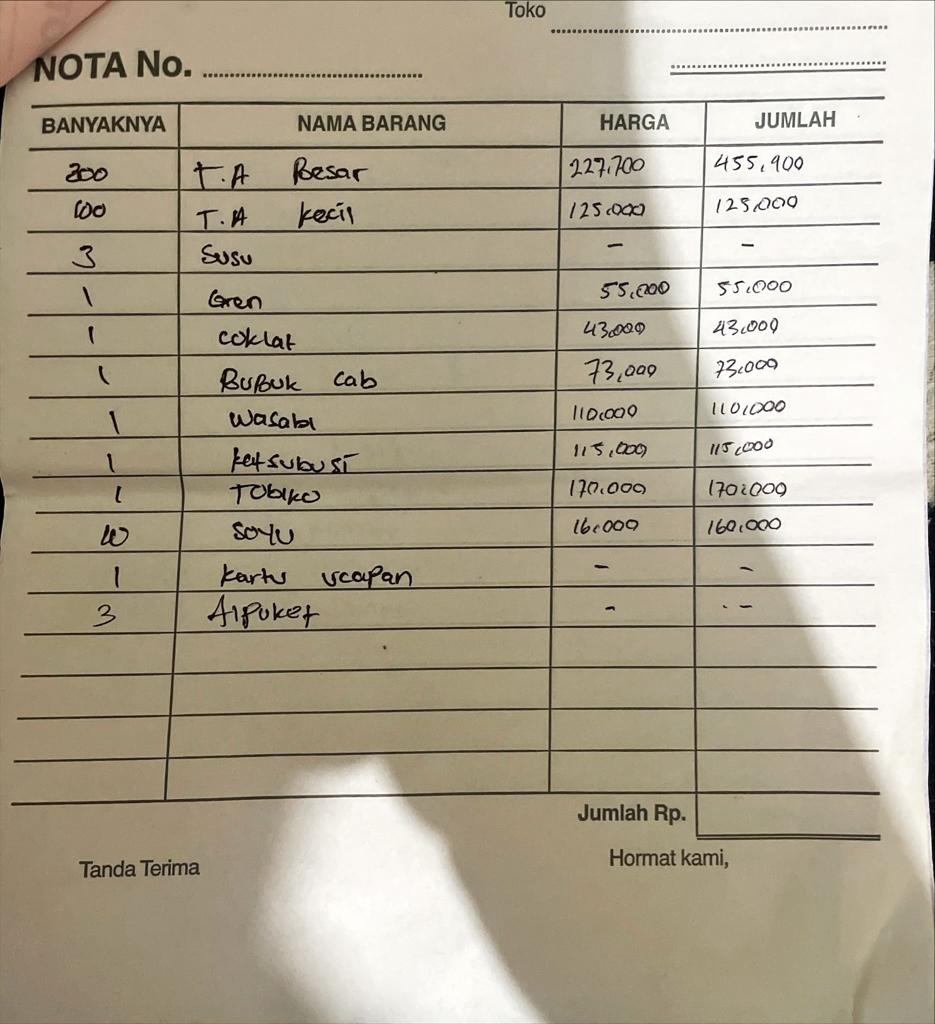 Toko
NOTA No.
BANYAKNYA NAMA BARANG HARGA JUMLAH
200 T.A Besar 227,700 455,900
100 T.A kecil 125.000 125,000
3 Susu - -
1 Gren 55,000 55,000
1 coklat 43,000 43.000
1 BuBuk cab 73,000 73,000
1 Wasabi 110,000 110,000
1 katsubusi 115,000 115,000
1 TObiko 170.000 170.000
10 SOYU 16.000 160,000
1 kartu ucapan - -
3 Alpuket - -
Jumlah Rp.
Tanda Terima Hormat kami,